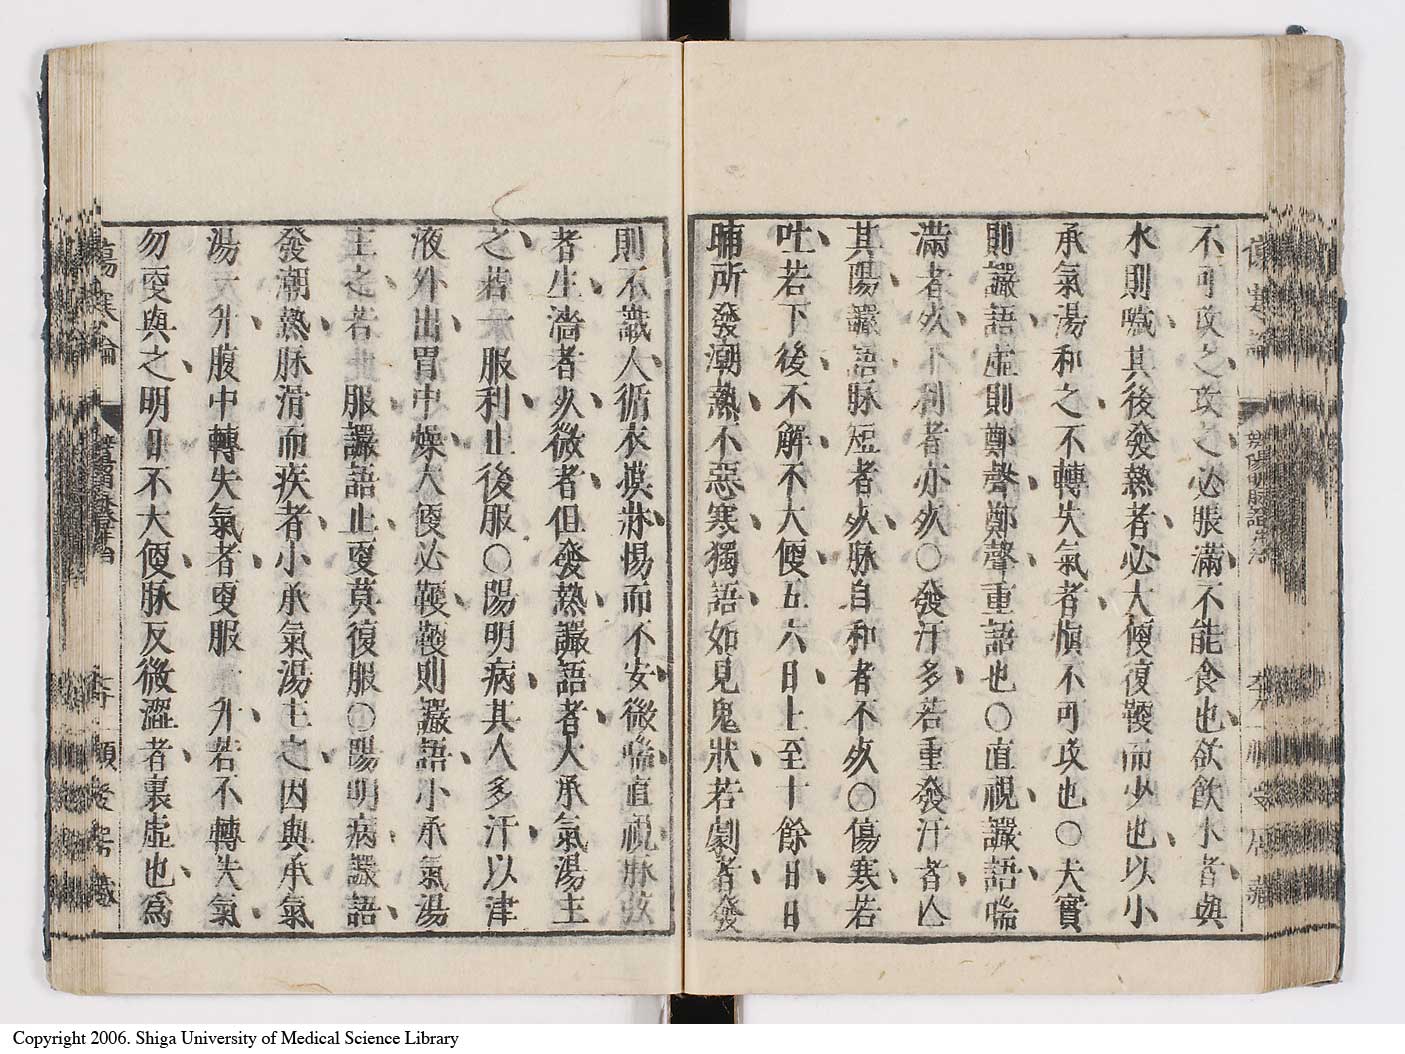 不可攻之攻之必脹滿不能食也欲飲水者與
水則噦其後發熱者必大便復鞕而少也以小
承氣湯和之不轉失氣者慎不可攻也〇夫實
則讝語虛則鄭聲鄭聲重語也〇直視讝語喘
滿者死下利者亦死〇發汗多若重發汗者亡
其陽讝語脉短者死脉自和者不死〇傷寒若
吐若下後不解不大便五六日上至十餘日日
晡所發潮熱不惡寒獨語如見鬼狀若劇者發
則不識人循衣摸牀惕而不安微喘直視脉弦
者生濇者死微者但發熱讝語者大承氣湯主
之若一服利止後服〇陽明病其人多汗以津
液外出胃中燥大便必鞕鞕則讝語小承氣湯
主之若一服讝語止更莫復服〇陽明病讝語
發潮熱脉滑而疾者小承氣湯主之因與承氣
湯一升腹中轉失氣者更服一升若不轉失氣
勿更與之明日不大便脉反微澀者裏虛也爲
Copyright 2006. Shiga University of Medical Science Library